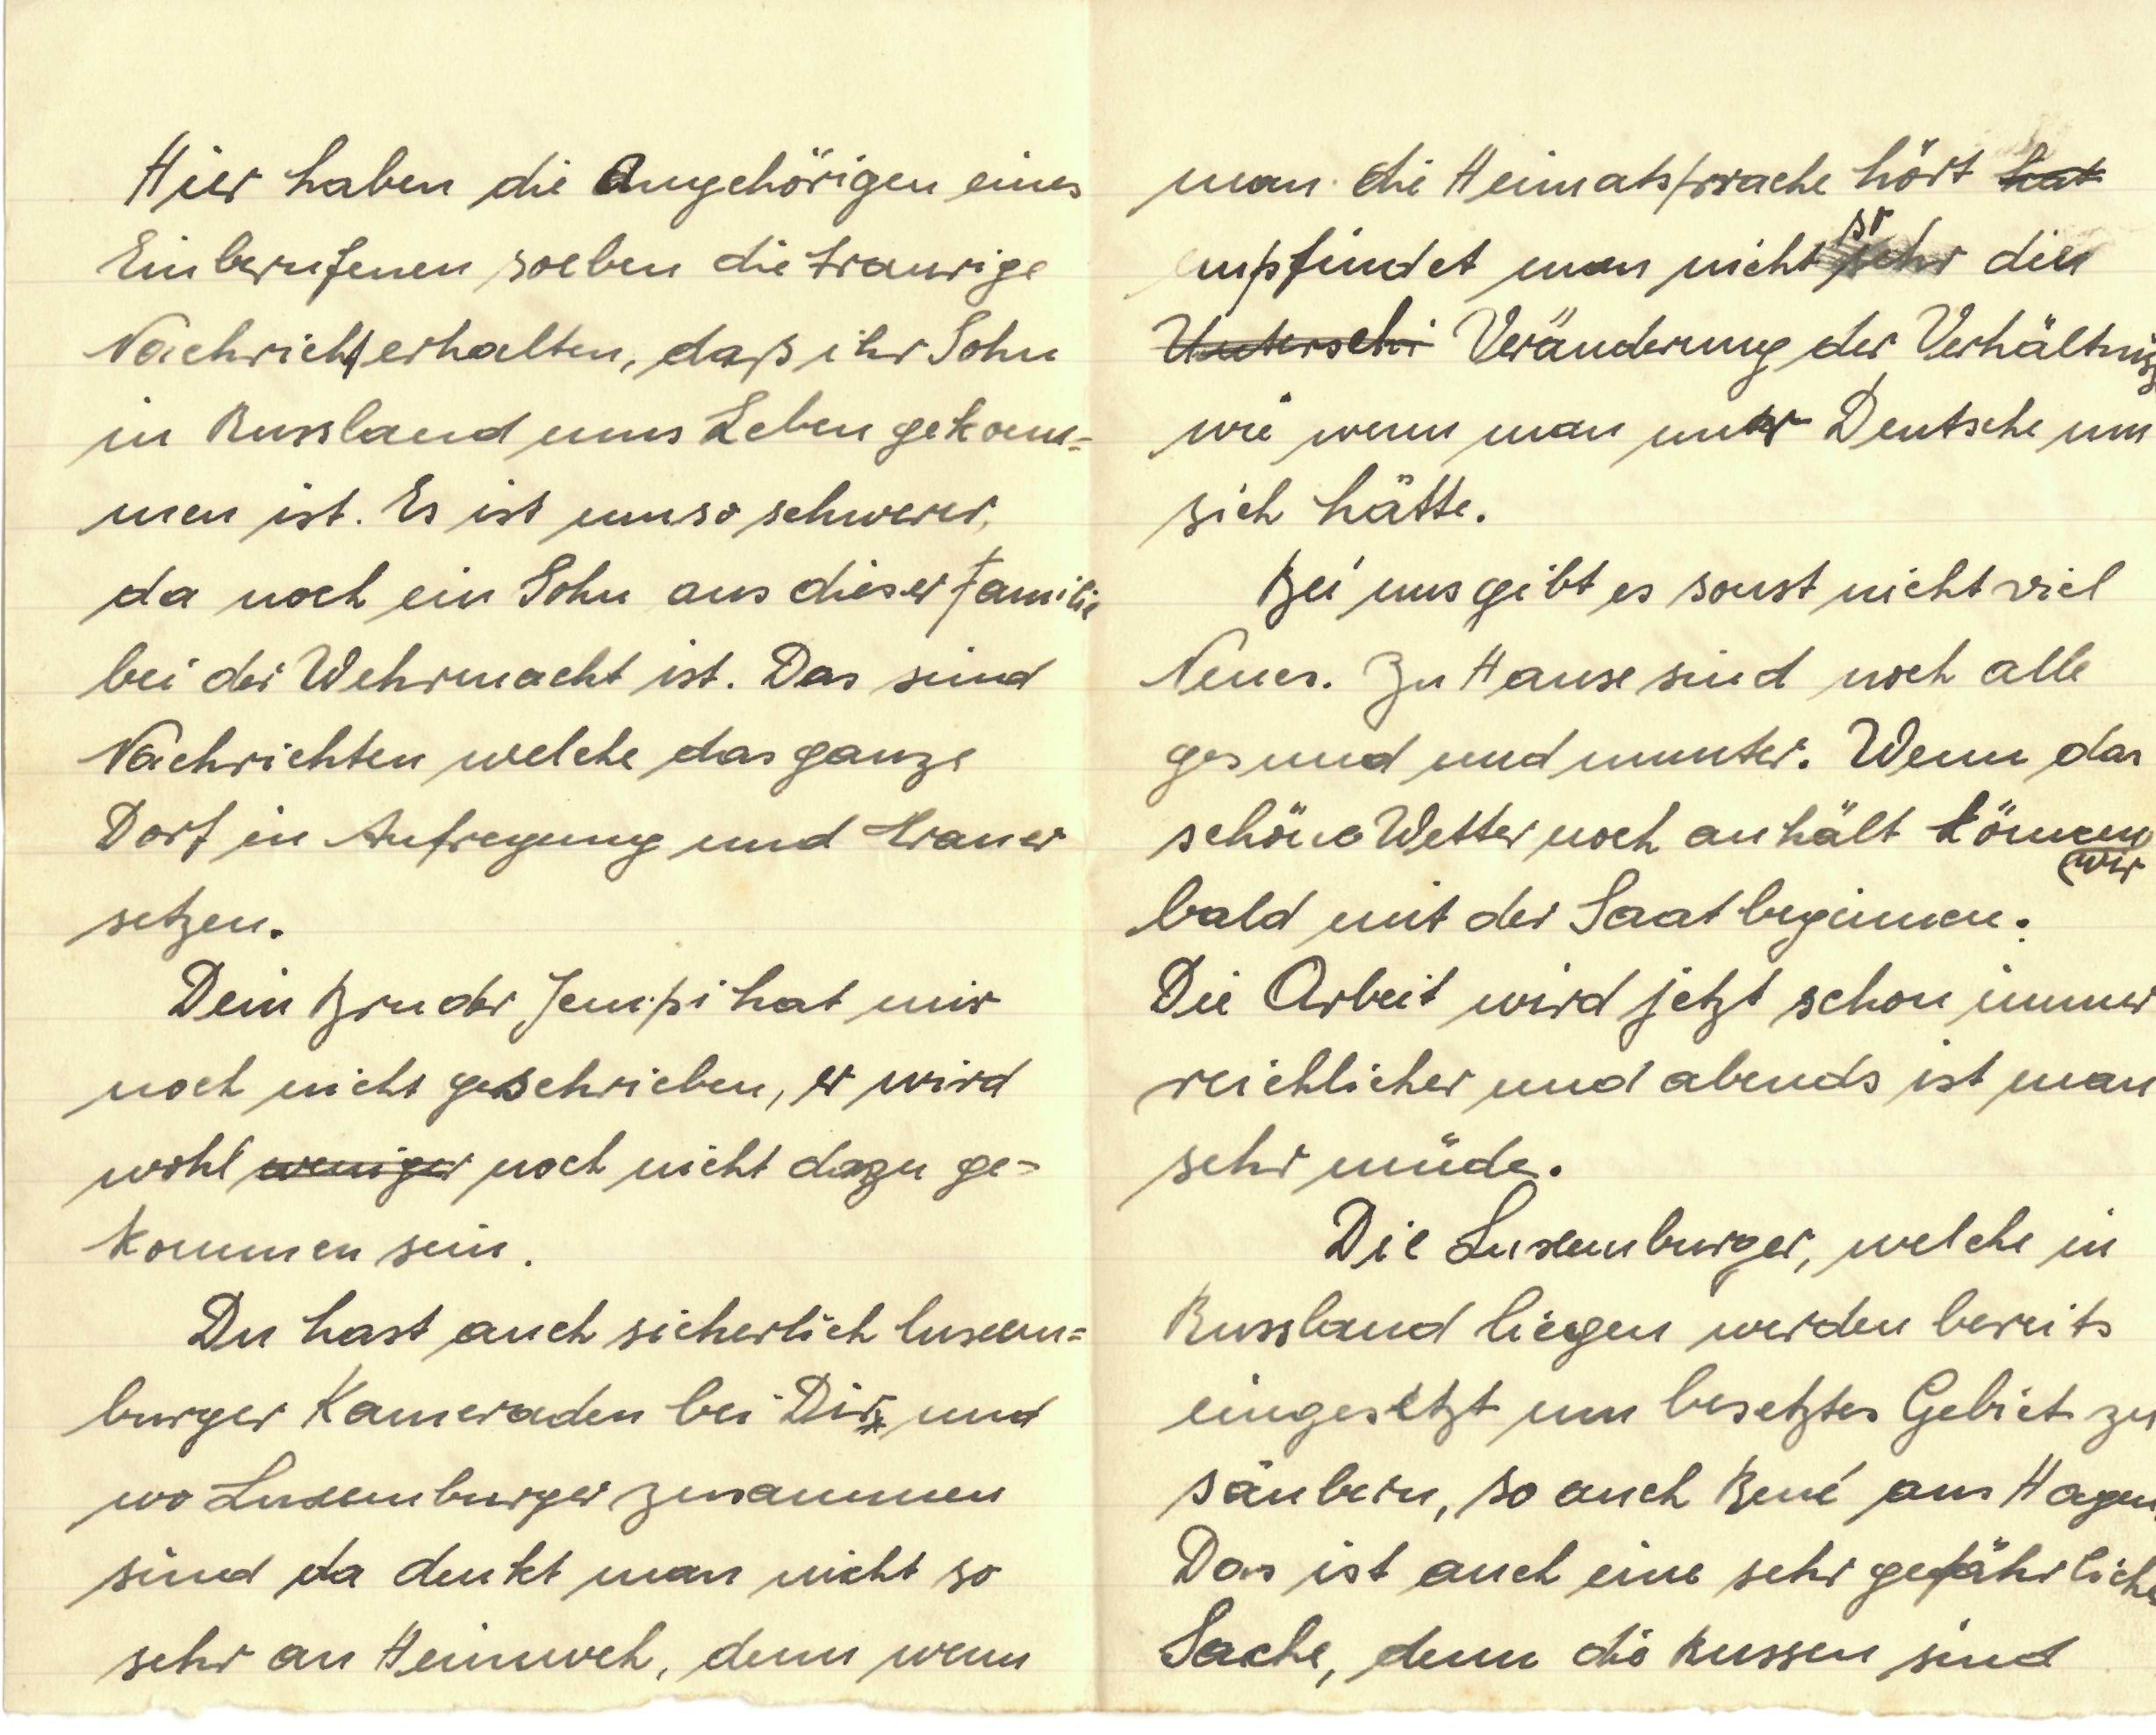 Hier haben die Angehörigen eines
Einberufenen soeben die traurige
Nachricht erhalten, daß ihr Sohn
in Russland ums Leben gekom=
men ist. Es ist umso schwerer,
da noch ein Sohn aus dieser Familie
bei der Wehrmacht ist. Das sind
Nachrichten welche das ganze
Dorf in Aufregung und Trauer
setzen.
Dein Bruder Jempi hat mir
noch nicht geschrieben, er wird
wohl weniger noch nicht dazu ge=
kommen sein.
Du hast auch sicherlich luxem=
burger Kameraden bei Dir, und
wo Luxemburger zusammen
sind da denkt man nicht so
sehr an Heimweh, denn wenn
man die Heimatsprache hört hat
empfindet man nicht so sehr die
Unterschi Veränderung der Verhältniss
wie wenn man nur Deutsche um
sich hätte.
Bei uns gibt es sonst nicht viel
Neues. Zu Hause sind noch alle
gesund und munter. Wenn das
schöne Wetter noch anhält können
wir
bald mit der Saat beginnen.
Die Arbeit wird jetzt schon immer
reichlicher und abends ist man
sehr müde.
Die Luxemburger, welche in
Russland liegen werden bereits
eingesetzt um besetztes Gebiet zu
säubern, so auch René aus Hagen.
Das ist auch eine sehr gefährliche
Sache, denn die Russen sind